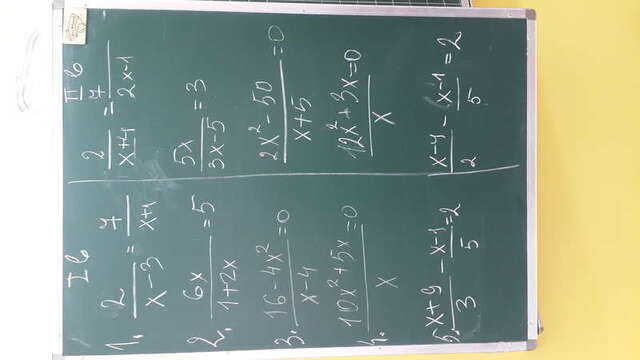 I в
1. 2/(x-3) = 7/(x+1)
2. 6x/(1+2x) = 5
3. (16-4x²)/(x-4) = 0
4. (10x²+5x)/x = 0
5. (x+9)/3 - (x-1)/5 = 2
II в
2/(x+4) = 7/(2x-1)
5x/(3x-5) = 3
(2x²-50)/(x+5) = 0
(12x²+3x)/x = 0
(x-4)/2 - (x-1)/5 = 2